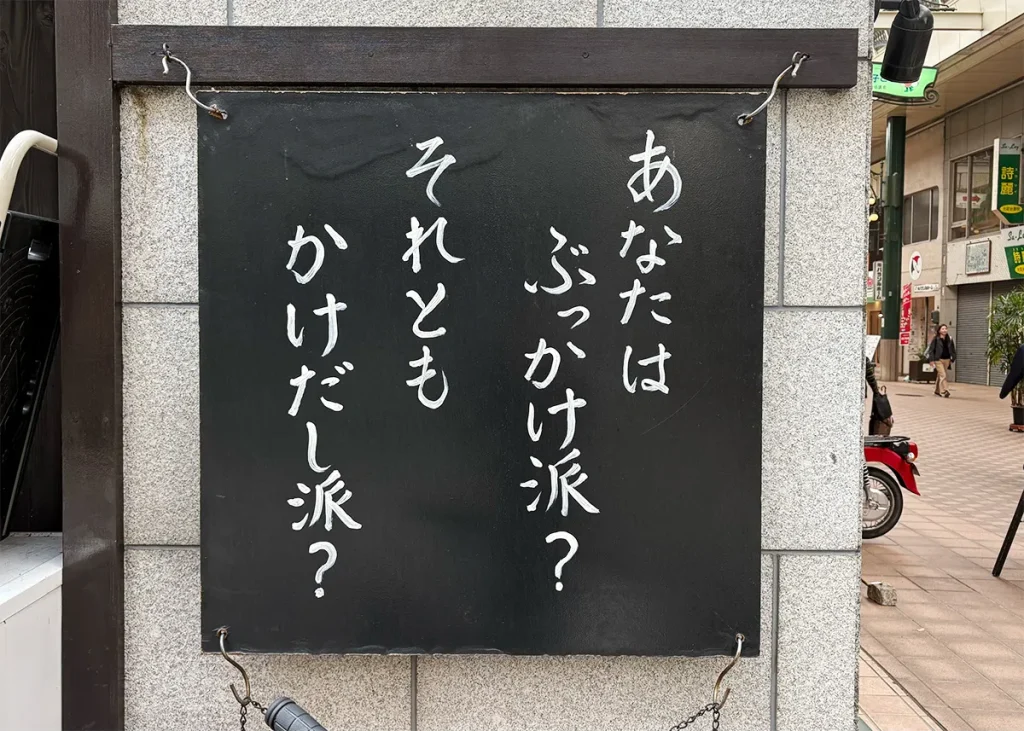 あなたは
ぶっかけ派?
それとも
かけだし派?
詩麗